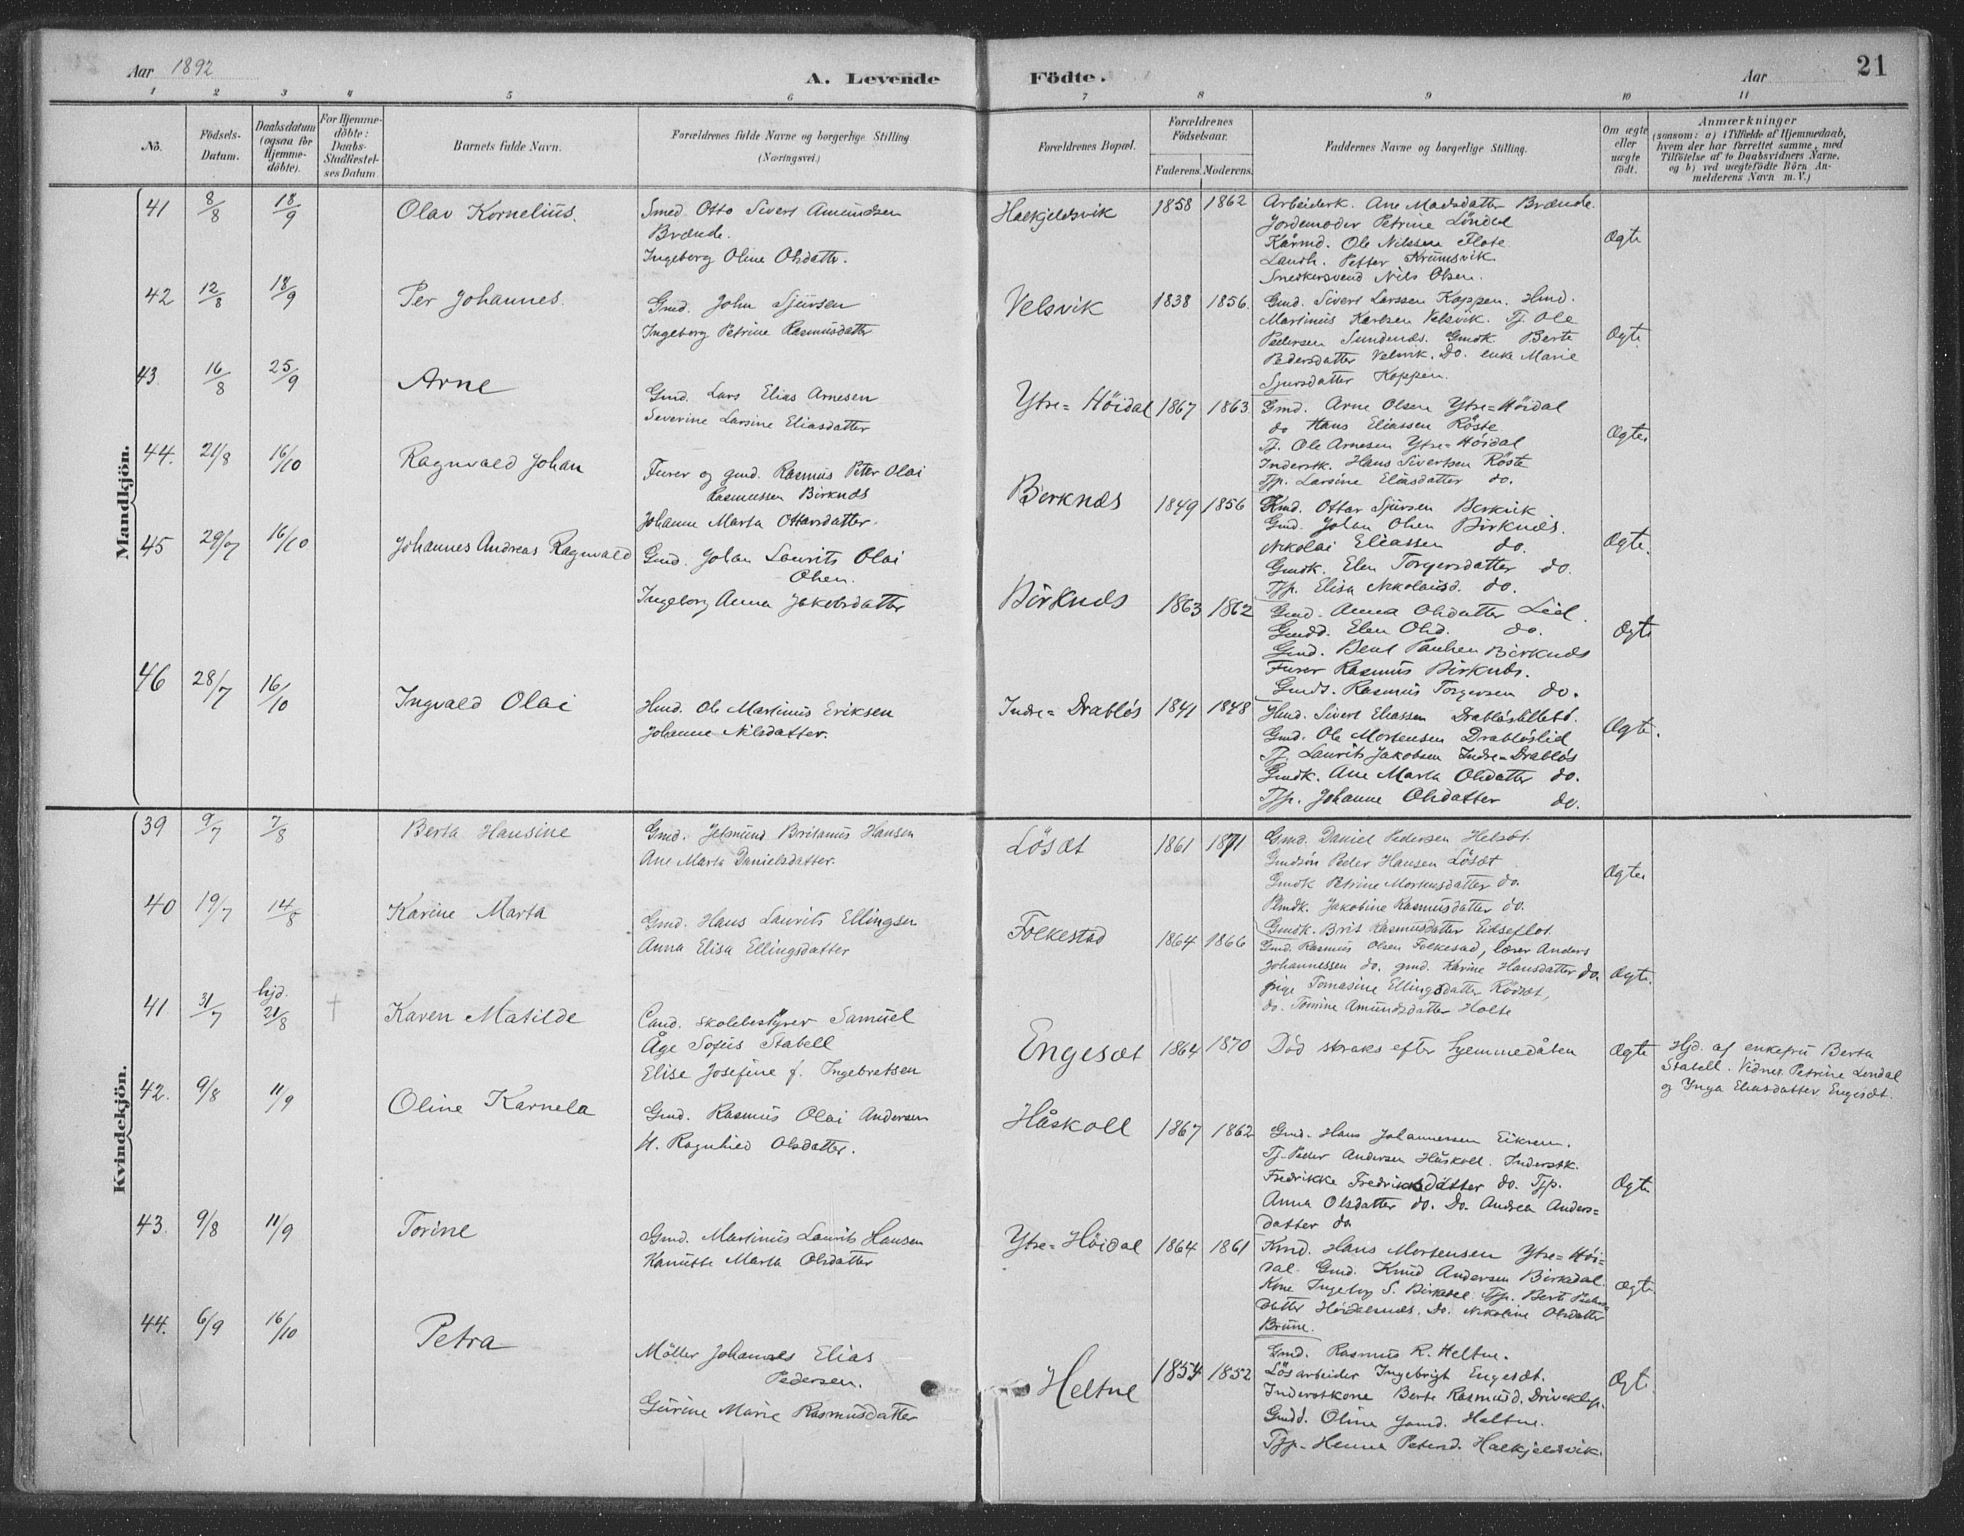 Aar 1892
A. Levende
Födte.
Aar
21
1 2 3 4 5 6 7 8 9 10 11
No.
Födsels-
Datum.
Daabsdatum
(ogsaa for
Hjemme-
döbte).
For Hjemme-
döbte:
Daabs-
Stadfæstel-
ses Datum.
Barnets fulde Navn.
Forældrenes fulde Navne og borgerlige Stilling
(Næringsvei.)
Forældrenes Bopæl.
Forældrenes
Födselsaar.
Faderens. Moderens.
Faddernes Navne og borgerlige Stilling.
Om ægte
eller
uægte
födt.
Anmærkninger
(saasom: a) i Tilfælde af Hjemmedaab,
hvem der har forrettet samme, med
Tilföielse af to Daabsvidners Navne.
og b) ved uægtefödte Börn An-
melderens Navn m. V.)
Mandkjön.
41 8/8 18/9 Olav Kornelius.
Smed. Otto Sivert Amundsen
Brænde.
Ingeborg Oline Olsdatter.
Halkjeldsvik 1858 1862
Arbeiderk. Ane Madsdatter Brænde.
Jordemoder Petrine Löndal
Kårmd. Ole Nilssen Flote
Landh. Petter Krumsvik
Snedkersvend Nils Olsen.
Ægte
42 12/8 18/9 Per Johannes.
Gmd. John Sjursen
Ingeborg Petrine Rasmusdatter
Velsvik 1838 1856.
Gmd. Sivert Larssen Koppen. Hmd.
Martinus Karlsen Velsvik. Tj. Ole
Pedersen Sundnæs. Gmdk. Berte
Pedersdatter Velsvik. Do. enke Marie
Sjursdatter Koppen.
Ægte.
43. 16/8 25/9 Arne
Gmd. Lars Elias Arnesen
Severine Larsine Eliasdatter
Ytre=Höidal 1867 1863
Gmd. Arne Olsen Ytre=Höidal
do Hans Eliassen Röste
Tj. Ole Arnesen Ytre=Höidal
Inderstk. Hans Sivertsen Röste
Tjp. Larsine Eliasdatter do.
Ægte
44. 21/8 16/10 Ragnvald Johan
Furer og gmd. Rasmus Peter Olai
Rasmussen Birknæs
Johanne Marta Ottarsdatter.
Birknæs 1849 1856
Kmd. Ottar Sjursen Berkvik
Gmd. Johan Olsen Birknæs.
Nikolai Eliassen do.
Gmdk. Elen Torgersdatter do.
Tjp. Elisa Nikolaisd. do.
Ægte.
45 29/7 16/10 Johannes Andreas Ragnvald
Gmd. Johan Laurits Olai
Olsen.
Ingeborg Anna Jakobsdatter
Birknæs 1863 1862
Gmd. Anna Olsdatter Lid.
Gmdd. Elen Olsd. do.
Gmd. Bent Paulsen Birknæs
Furer Rasmus Birknæs.
Gmds. Rasmus Torgersen do.
Ægte
46 28/7 16/10 Ingvald Olai
Hmd. Ole Martinus Eriksen
Johanne Nilsdatter.
Indre=Drabløs 1841 1848
Hmd. Sivert Eliassen
Gmd. Ole Mortensen Drabløslid
Tj. Laurits Jakobsen Indre=Drabløs
Gmdk. Ane Marta Olsdatter do.
Tjp. Johanne Olsdatter do.
Ægte.
Kvindekjön.
39 9/7 7/8 Berta Hansine
Gmd. Jetmund Britanus Hansen
Ane Marta Danielsdatter.
Løsæt 1861 1871
Gmd. Daniel Pedersen Helsæt.
Gmdsön Peder Hansen Løsæt
Gmdk Petrine Mortensdatter do.
Plmdk. Jakobine Rasmusdatter do.
Gmdk. Brit Rasmusdatter Eidseflot.
Ægte
40 19/7 14/8 Karine Marta
Gmd. Hans Laurits Ellingsen
Anna Elisa Ellingsdatter
Folkestad 1864 1866
Gmd. Rasmus Olsen Folkestad, lærer Anders
Johannessen do. gmd. Karine Hansdatter do.
pige Tomasine Ellingsdatter Rødsæt,
do. Tomine Amundsdatter Holte
Ægte.
41 31/7 hjd. 21/8 † Karen Matilde
Cand. skolebestyrer Samuel
Åge Sofus Stabell
Elise Josefine f. Ingebretsen
Engesæt 1864 1870
Död straks efter hjemmedåben
Ægte
Hjd. af enkefru Berta
Stabell. Vidner Petrine Løndal
og Inga Eliasdatter Engesæt.
42. 9/8 11/9 Oline Karnela
Gmd. Rasmus Olai Andersen
H. Ragnhild Olsdatter.
Håskoll 1867 1862
Gmd. Hans Johannessen Eikrem.
Tj. Peder Andersen Håskoll. Inderstk.
Fredrikke Fredriksdatter do. Tjp.
Anna Olsdatter do. Do. Andrea Anders=
datter do
Ægte
43. 9/8 11/9 Torine
Gmd. Martinus Laurits Hansen
Hanitte Marta Olsdatter
Ytre=Höidal 1864 1861
Kmd. Hans Mortensen Ytre=Höi=
dal. Gmd. Knud Andersen Birkedal.
Kone Ingeborg S. Birkedal. Tjp. Berte
datter Höidalsnæs. Do. Nikoline Olsdatter
Brune.
Ægte.
44. 6/9 16/10 Petra
Möller Johannes Elias
Pedersen.
Gurine Marie Rasmusdatter
Heltne 1854 1852
Gmd. Rasmus R. Heltne.
Lösarbeider Ingebrigt Engesæt.
Inderstkone Berte Rasmusd. Driveklep.
Gmdd. Oline Jond. Heltne.
Tjp. Hanna Petersd. Halkjeldsvik.
Ægte.